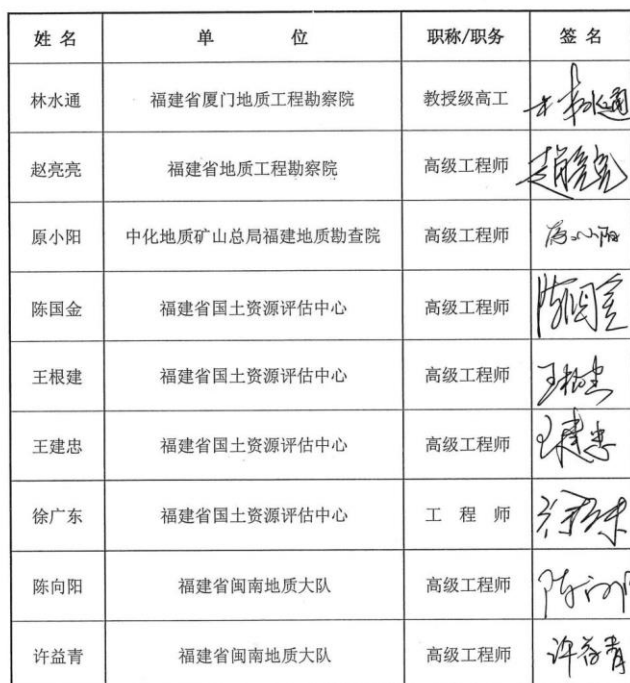 姓 名 单 位 职称/职务 签 名
林水通 福建省厦门地质工程勘察院 教授级高工 林水通
赵亮亮 福建省地质工程勘察院 高级工程师 赵亮亮
原小阳 中化地质矿山总局福建地质勘查院 高级工程师 原小阳
陈国金 福建省国土资源评估中心 高级工程师 陈国金
王根建 福建省国土资源评估中心 高级工程师
王建忠 福建省国土资源评估中心 高级工程师 王建忠
徐广东 福建省国土资源评估中心 工 程 师 徐广东
陈向阳 福建省闽南地质大队 高级工程师 陈向阳
许益青 福建省闽南地质大队 高级工程师 许益青